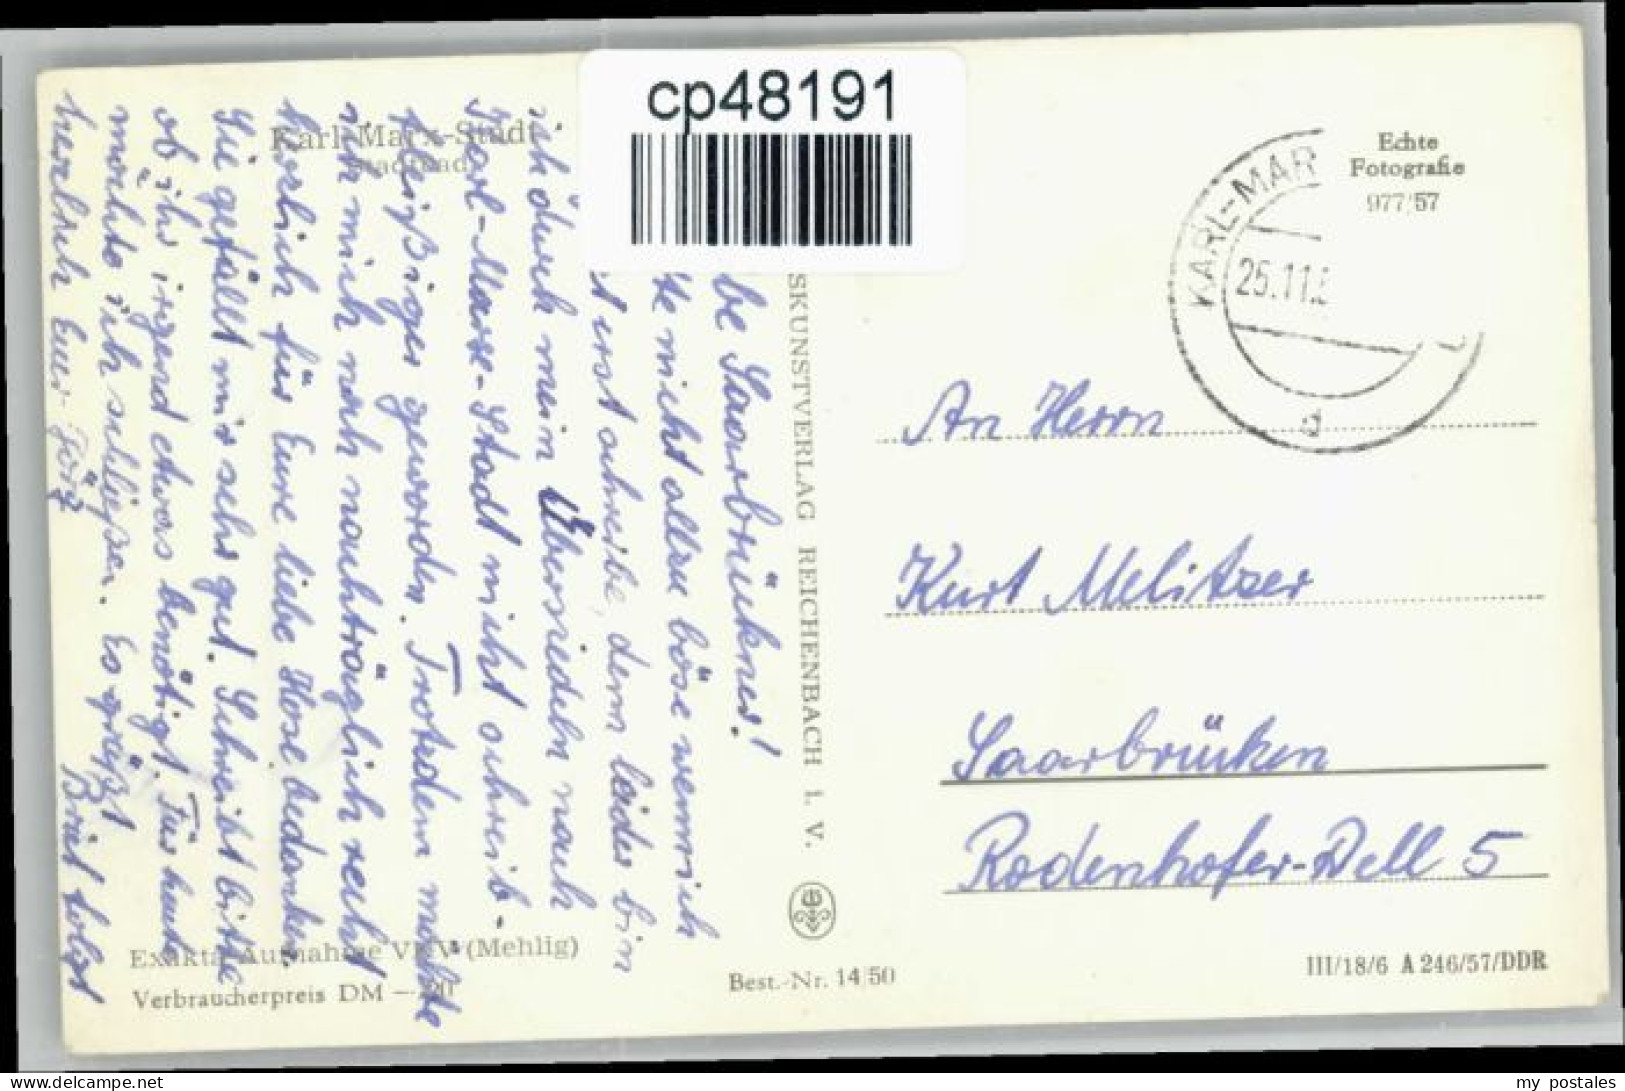 cp48191
Karl-Marx-Stadt
Stadtbad
be Saarbrückner!
te nicht allzu böse wenn ich
t erst schreibe, denn leider bin
ich durch mein Übersiedeln nach
Karl-Marx-Stadt nicht schreib-
fleißiger geworden. Trotzdem möchte
ich mich noch nachträglich recht
herzlich für Eure liebe Hose bedanken.
Sie gefällt mir sehr gut. Schreibt bitte
ob ihr irgend etwas benötigt. Für heute
möchte ich schließen. Es grüßt
herzlich Euer Jörg
Brief folgt
Exakta Aufnahme VKV (Mehlig)
Verbraucherpreis DM —.20
SKUNSTVERLAG REICHENBACH I. V.
Best.-Nr. 14/50
KARL-MAR
25.11.5
d
Echte
Fotografie
977/57
An Herrn
Kurt Melitzer
Saarbrücken
Rodenhofer-Dell 5
III/18/6 A 246/57/DDR
www.delcampe.net
my_postales